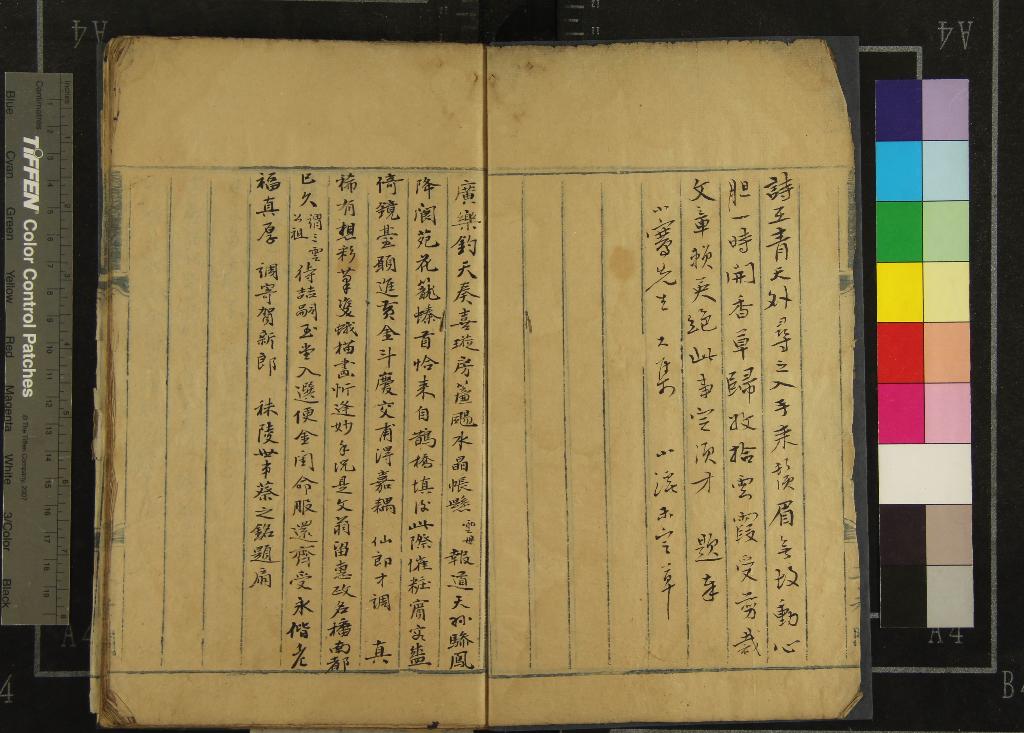 詩在青天外尋之入手來鬚眉無故動心
胆一時開香草歸收拾雲霞受剪裁
文章賴與絕此事定須才 題奉
小騫先生大集 小溪未定草
廣樂鈞天奏喜璇房簾颺水晶帳懸雲母報道天孫驂鳳
降閬苑花蓺螓首恰来自鵲橋填後此際催粧賓客盛
倚鏡臺願進黄金斗慶交甫得嘉耦 仙郎才調 真
稀有想彩筆雙蛾描畫忻逢妙手況是文翁留惠政名播南都
已久謂之雲公祖待喆嗣玉堂入選便金閨命服還齊受永偕老
福真厚 調寄賀新郎 秣陵世弟蔡之銘題扇
TIFFEN Color Control Patches
© The Tiffen Company, 2007
Inches
Centimetres
Blue Cyan Green Yellow Red Magenta White 3/Color Black
A4
A4
A4
A4
B